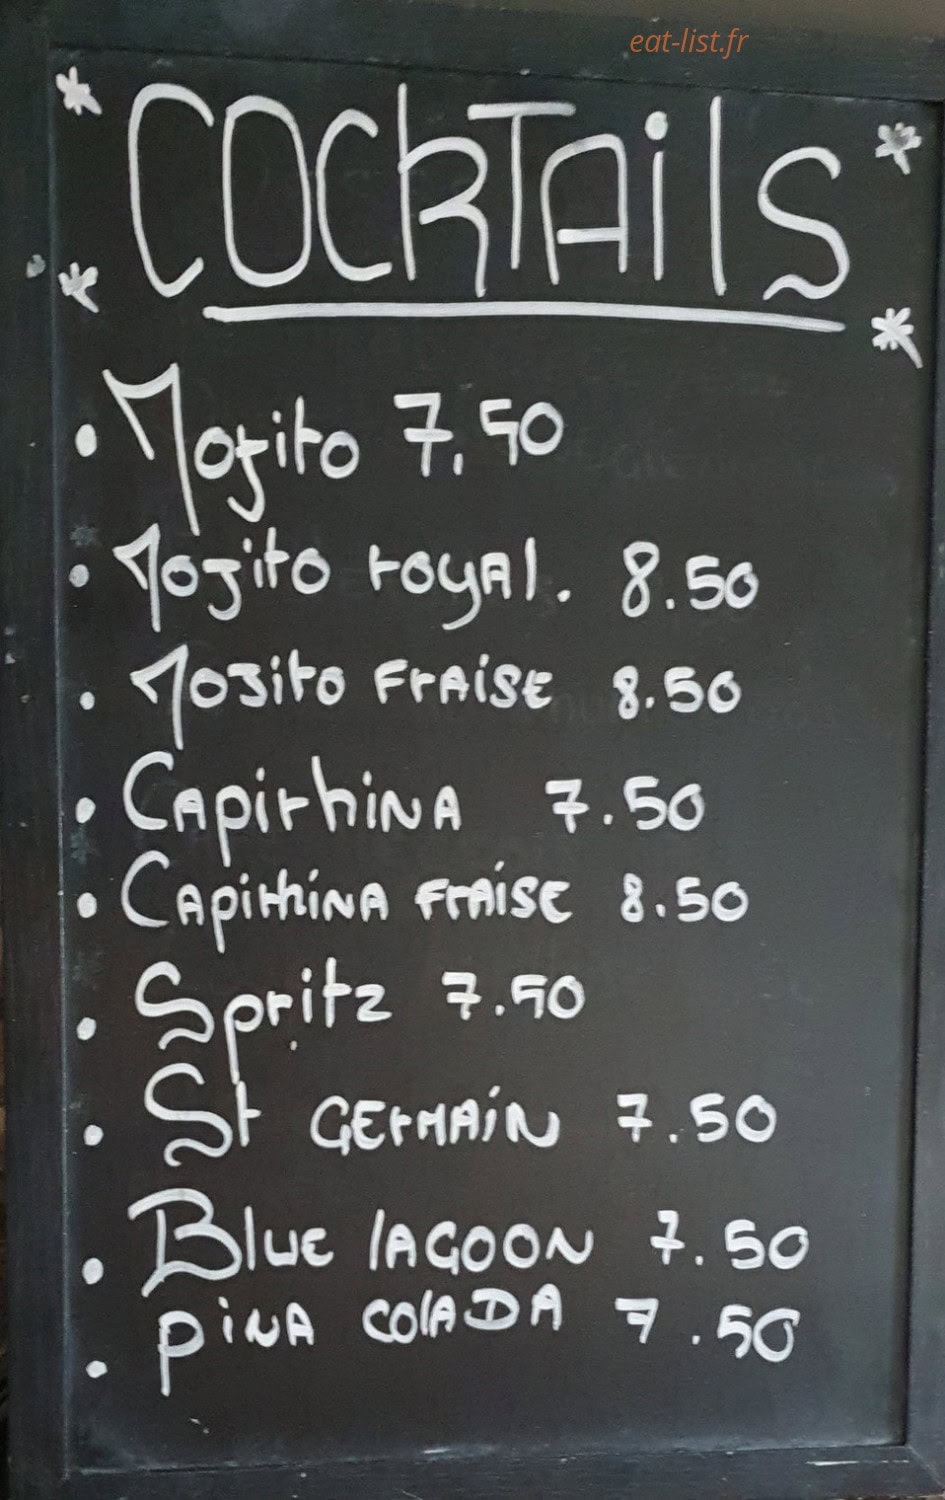 eat-list.fr
COCKTAilS
Mojito 7,50
Mojito royAl. 8.50
Mojito FrAiSE 8.50
CApirhiNA 7.50
CApirhiNA FrAiSE 8.50
Spritz 7.50
St GErMAiN 7.50
BluE lAGOON 7.50
piNA COlADA 7.50